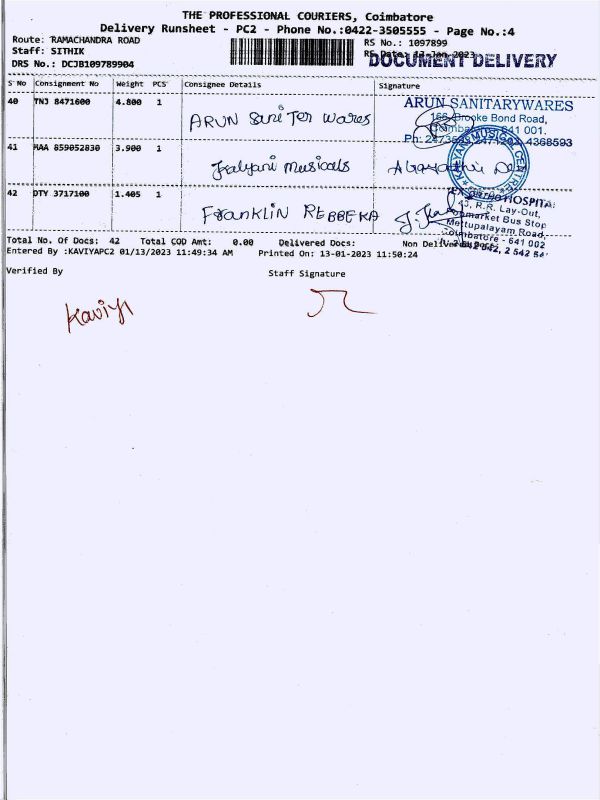 THE PROFESSIONAL COURIERS, Coimbatore
Delivery Runsheet - PC2 - Phone No.:0422-3505555 - Page No.:4
Route: RAMACHANDRA ROAD
RS No.: 1097899
Staff: SITHIK
RS Date: 13-Jan-2023
DOCUMENT DELIVERY
DRS No.: DCJB109789904
S No Consignment No Weight PCS Consignee Details Signature
40 TNJ 8471600 4.800 1 ARUN Sani Ter wares
ARUN SANITARYWARES
166, Brooke Bond Road,
641 001.
4368593
41 MAA 859052830 3.900 1 Kalyani musicals
KALYANI MUSICAL CENTRE
42 DTY 3717100 1.405 1 FRANKLIN REBBEKA
HOSPITAL
43, R.R. Lay-Out,
Bus Stop
Mettupalayam Road,
Coimbatore - 641 002
Total No. Of Docs: 42 Total COD Amt: 0.00 Delivered Docs: Non Delivered Docs:
Entered By :KAVIYAPC2 01/13/2023 11:49:34 AM Printed On: 13-01-2023 11:50:24
Verified By Staff Signature
Kaviya